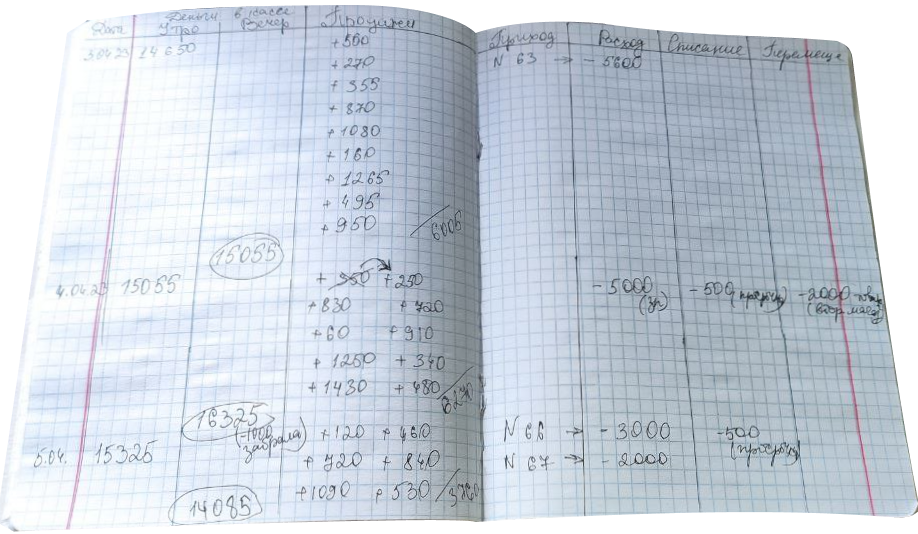 Дата Деньги в кассе Продажи Приход Расход Списание Перемеще
Утро Вечер
3.04.23 14650 +560 N 63 → -5600
+270
+355
+870
+1080
+160
+1265
+495
+950 6005
15055
4.04.23 15055 + 350 +250 -5000 -500 (просрочка) -2000
(зп)
+830 +720
+60 +910
+1250 +340
+1430 +480
16325
(-1000 забрала)
5.04. 15325 +120 +460 N 66 → -3000 -500
(просрочка)
+720 +840 N 67 → -2000
+1090 +530 /3760
14085